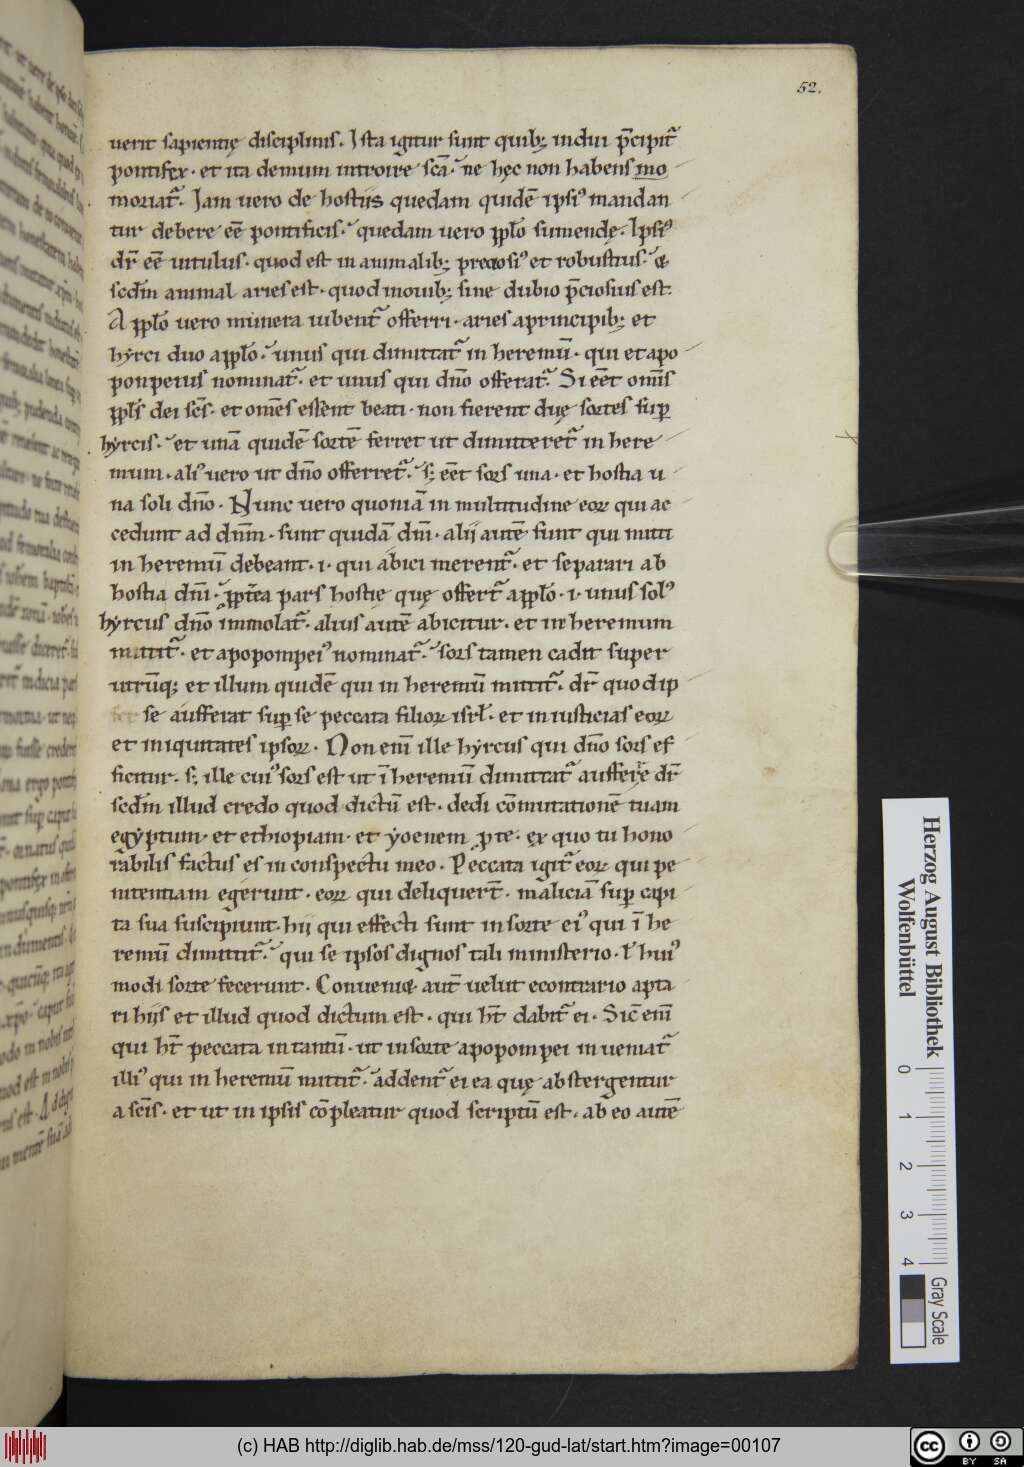 52.
uerit sapientię disciplinis. Ista igitur sunt quib; indui p̄cipit᷑
pontifęx. et ita demum introire sc̄a. ne hęc non habens mo
moriat᷑. Iam uero de hostiis quedam quidē ipsi⁹ mandan
tur debere eē̄ pontificis. quedam uero ꝓplō sumendę. Ipsi⁹
dr̄ eē̄ uitulus. quod est in animalib; preciosi⁹ et robustius. &
scd̄m animal aries est. quod in ouib; sine dubio p̄ciosius est.
A ꝓplō uero munera iubent᷑ offerri. aries a principib; et
hẏrci duo a ꝓplō. unus qui dimittat᷑ in heremū. qui et apo
ponpeius nominat᷑. et unus qui dn̄o offerat᷑. Si eēt om̄is
ꝓpl̄s dei sc̄s. et om̄es essent beati. non fierent duę sortes suꝑ
hẏrcis. et unā quidē sortē ferret ut dimitteret᷑ in here
mum. ali⁹ uero ut dn̄o offerret᷑. s; eēt sors una. et hostia u
na soli dn̄o. Nunc uero quoniā in multitudine eoꝝ qui ac
cedunt ad dn̄m. sunt quidā dn̄i. alij autē sunt qui mitti
in heremū debeant. i. qui abici merent᷑. et separari ab
hostia dn̄i. ꝓpt̄ea pars hostię quę offert᷑ a ꝓplō. i. unus sol⁹
hẏrcus dn̄o immolat᷑. alius autē abicitur. et in heremum
mittit᷑. et apopompei⁹ nominat᷑. sors tamen cadit super
utrūq; et illum quidē qui in heremū mittit᷑. dr̄ quod ip
se aufferat suꝑ se peccata filioꝝ isrł. et iniusticias eoꝝ
et iniquitates ipsoꝝ. Non enī ille hẏrcus qui dn̄o sors ef
ficitur. s; ille cui⁹ sors est ut ī heremū dimittat᷑ aufferre dr̄
scd̄m illud credo quod dictū est. dedi cōmutationē tuam
egẏptum. et ethiopiam. et ẏoenem p te. ęx quo tu hono
rabilis factus es in conspectu meo. Peccata igit᷑ eoꝝ qui pe
nitentiam egerunt. eoꝝ qui deliquert̄. maliciā suꝑ capi
ta sua suscipiunt. hij qui effecti sunt in sorte ei⁹ qui ī he
remū dimittit᷑. qui se ipsos dignos tali ministerio. ł hui⁹
modi sorte fecerunt. Conuenięt aut̄ uelut econtrario apta
ri hijs et illud quod dictum est. qui ht̄ dabit᷑ ei. Sic enī
qui ht̄ peccata in tantū. ut in sorte apopompei inueniat᷑
illi⁹ qui in heremū mittit᷑. addent᷑ ei ea quę abstergentur
a sc̄is. et ut in ipsis cōpleatur quod scriptū est. ab eo autē
Herzog August Bibliothek
Wolfenbüttel
0 1 2 3 4
Gray Scale
(c) HAB http://diglib.hab.de/mss/120-gud-lat/start.htm?image=00107
cc BY SA